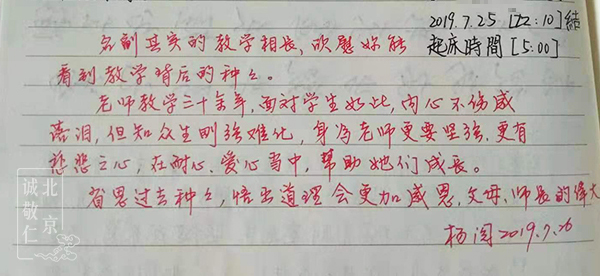 2019.7.25 [22:10]結
起床時間[5:00]
名副其实的教学相长,欣慰妳能
看到教学背后的种々。
老师教学三十余年,面对学生如此,内心不伤感
落泪,但知众生刚强难化,身为老师更要坚强,更有
慈悲之心,在耐心、爱心当中,帮助她们成长。
省思过去种々,悟出道理会更加感恩,父母、师长的偉大
阅2019.7.26
北京
诚敬仁